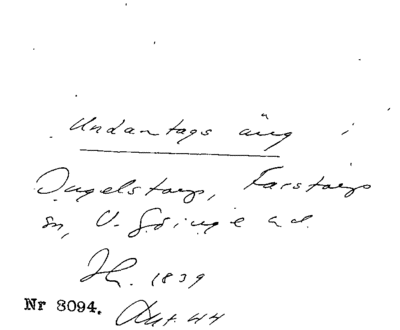 Undantags äng i
Ingelstorp, Farstorps
sn, V. Göinge hd.
Jh. 1839
Nr 8094. Akt 44